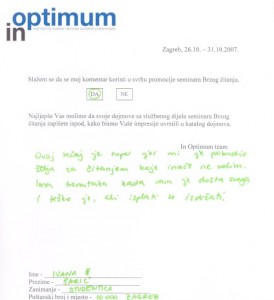 in optimum
Zagreb, 26.10. – 31.10.2007.
Slažem se da se moj komentar koristi u svrhu promocije seminara Brzog čitanja.
DA NE
Najljepše Vas molimo da svoje dojmove sa službenog dijela seminara Brzog
čitanja zapišete ispod, kako bismo Vaše impresije uvrstili u katalog dojmova.
In Optimum team
Ovaj tečaj je super jer mi je
želja za čitanjem koje inače ne volim.
Ima trenutaka kada mi je dosta svega
i teško je, ali isplati se izdržati.
Ime - IVANA
Prezime - ŠARIĆ
Zanimanje - STUDENTICA
Poštanski broj i mjesto - 10 000 ZAGREB